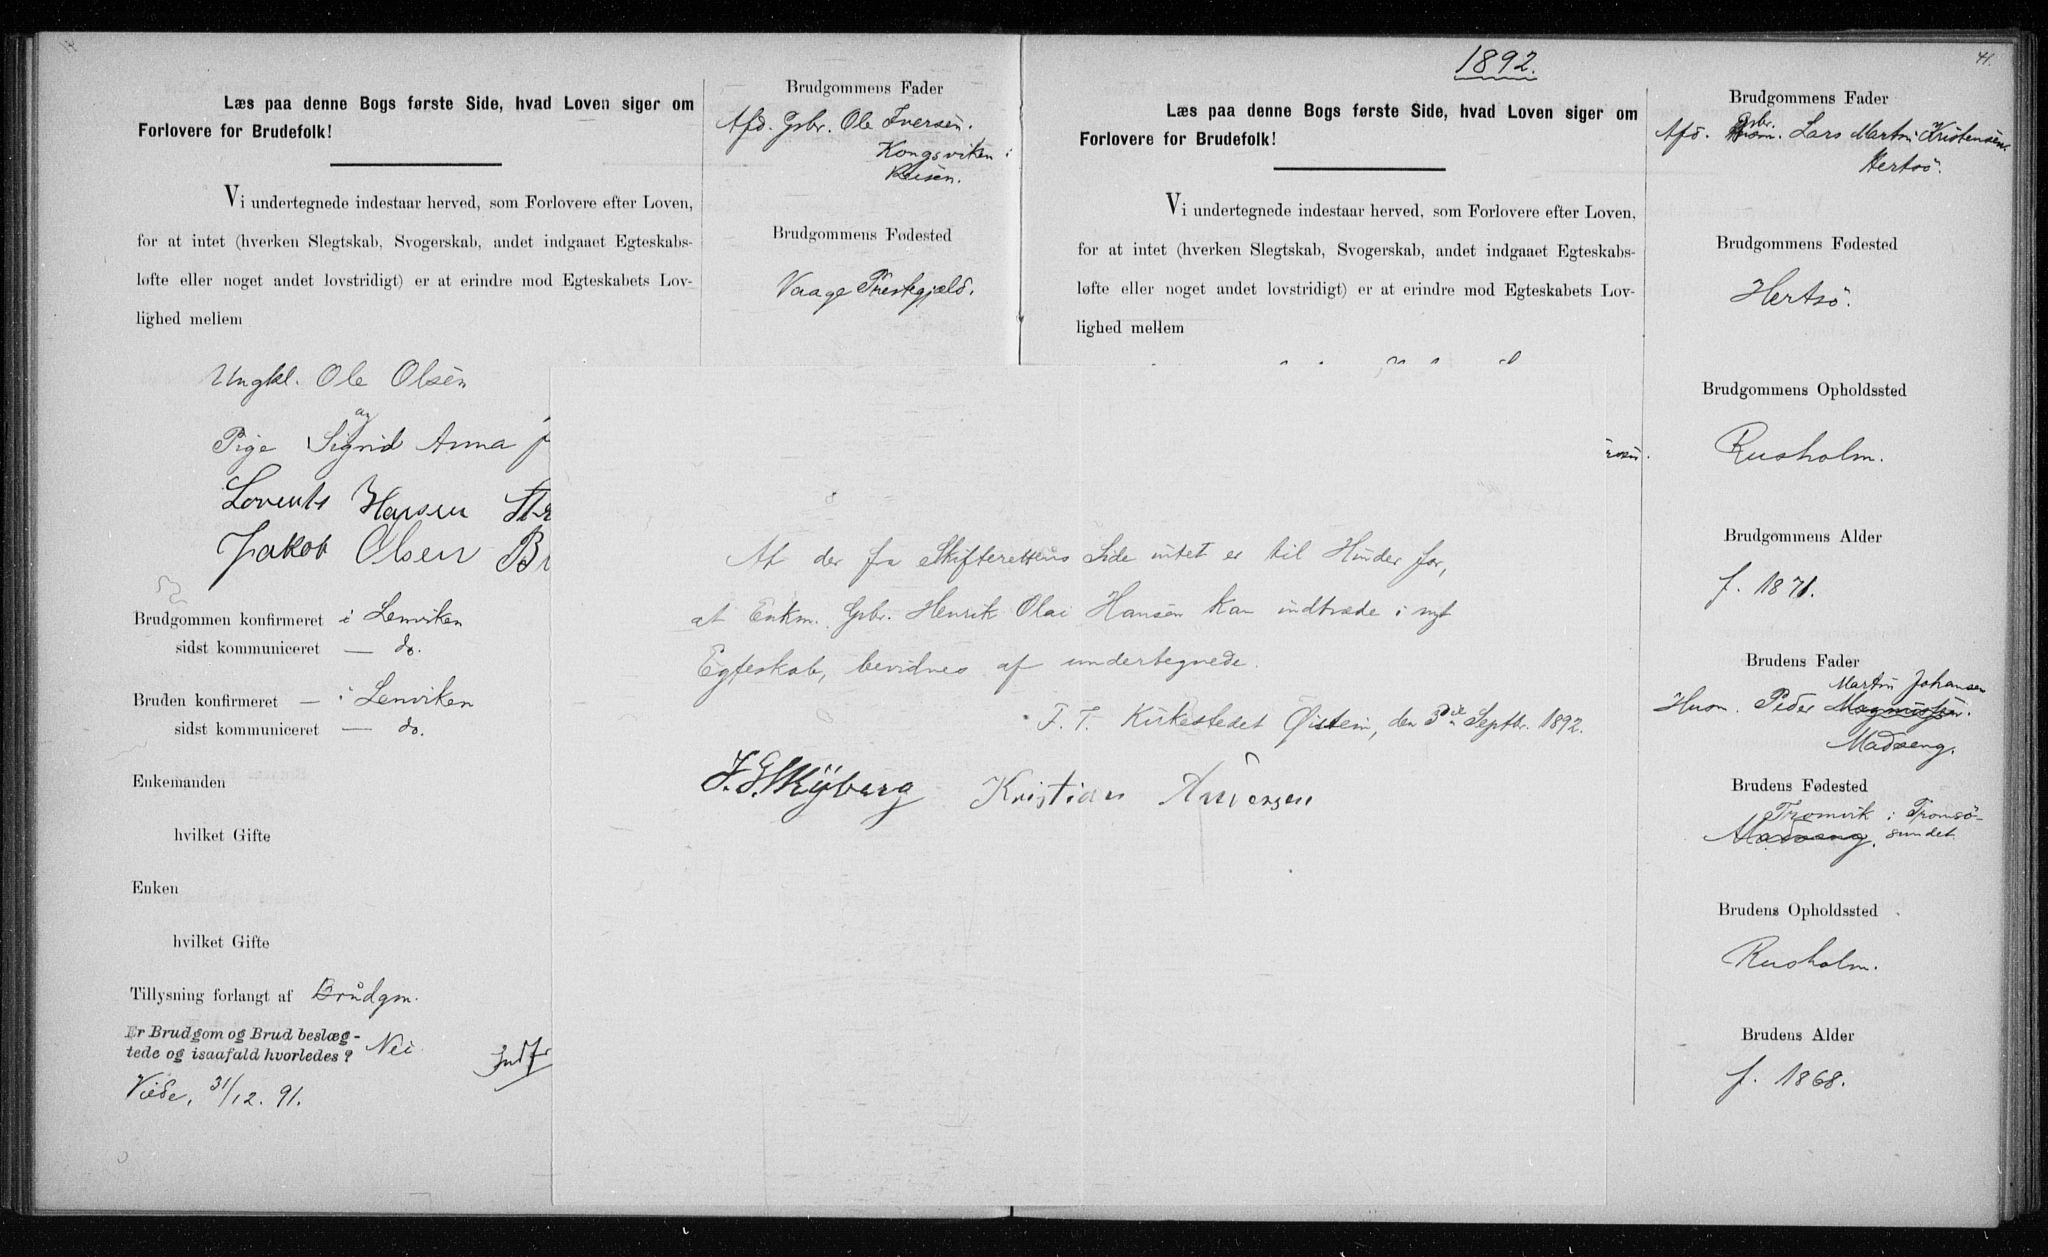 Læs paa denne Bogs første Side, hvad Loven siger om
Forlovere for Brudefolk!
Vi undertegnede indestaar herved, som Forlovere efter Loven,
for at intet (hverken Slegtskab, Svogerskab, andet indgaaet Egteskabs-
løfte eller noget andet lovstridigt) er at erindre mod Egteskabets Lov-
lighed mellem
Ungkl. Ole Olsen
og
Pige Sigrid Anna
Lorents Hansen
Jakob Olsen
Brudgommen konfirmeret i Lenviken
sidst kommuniceret — do.
Bruden konfirmeret — i Lenviken
sidst kommuniceret — do.
Enkemanden
hvilket Gifte
Enken
hvilket Gifte
Tillysning forlangt af Brudgm.
Er Brudgom og Brud beslæg-
tede og isaafald hvorledes? Nei
Viede, 31/12. 91.
Brudgommens Fader
Afd. Gsbr. Ole Iversen.
Kongsviken i
Brudgommens Fødested
Vaage Prestegjeld.
At der fra Skifterettens Side intet er til Hinder for,
at Enkm. Gsbr. Henrik Olai Hansen kan indtræde i nyt
Egteskab, bevidnes af undertegnede.
F. T. Kirkestedet Øistein, den 3die Septbr. 1892.
Kristian
1892.
41.
Læs paa denne Bogs første Side, hvad Loven siger om
Forlovere for Brudefolk!
Vi undertegnede indestaar herved, som Forlovere efter Loven,
for at intet (hverken Slegtskab, Svogerskab, andet indgaaet Egteskabs-
løfte eller noget andet lovstridigt) er at erindre mod Egteskabets Lov-
lighed mellem
Brudgommens Fader
Gsbr.
Afd. Husm. Lars Martin Kristensen.
Hertsö.
Brudgommens Fødested
Hertsö.
Brudgommens Opholdssted
Rusholm.
Brudgommens Alder
f. 1871.
Brudens Fader
Martin Johansen
Husm. Peder Magnussen.
Madseng.
Brudens Fødested
Tromvik i Tromsö-
Madseng. sundet
Brudens Opholdssted
Rusholm.
Brudens Alder
f. 1868.